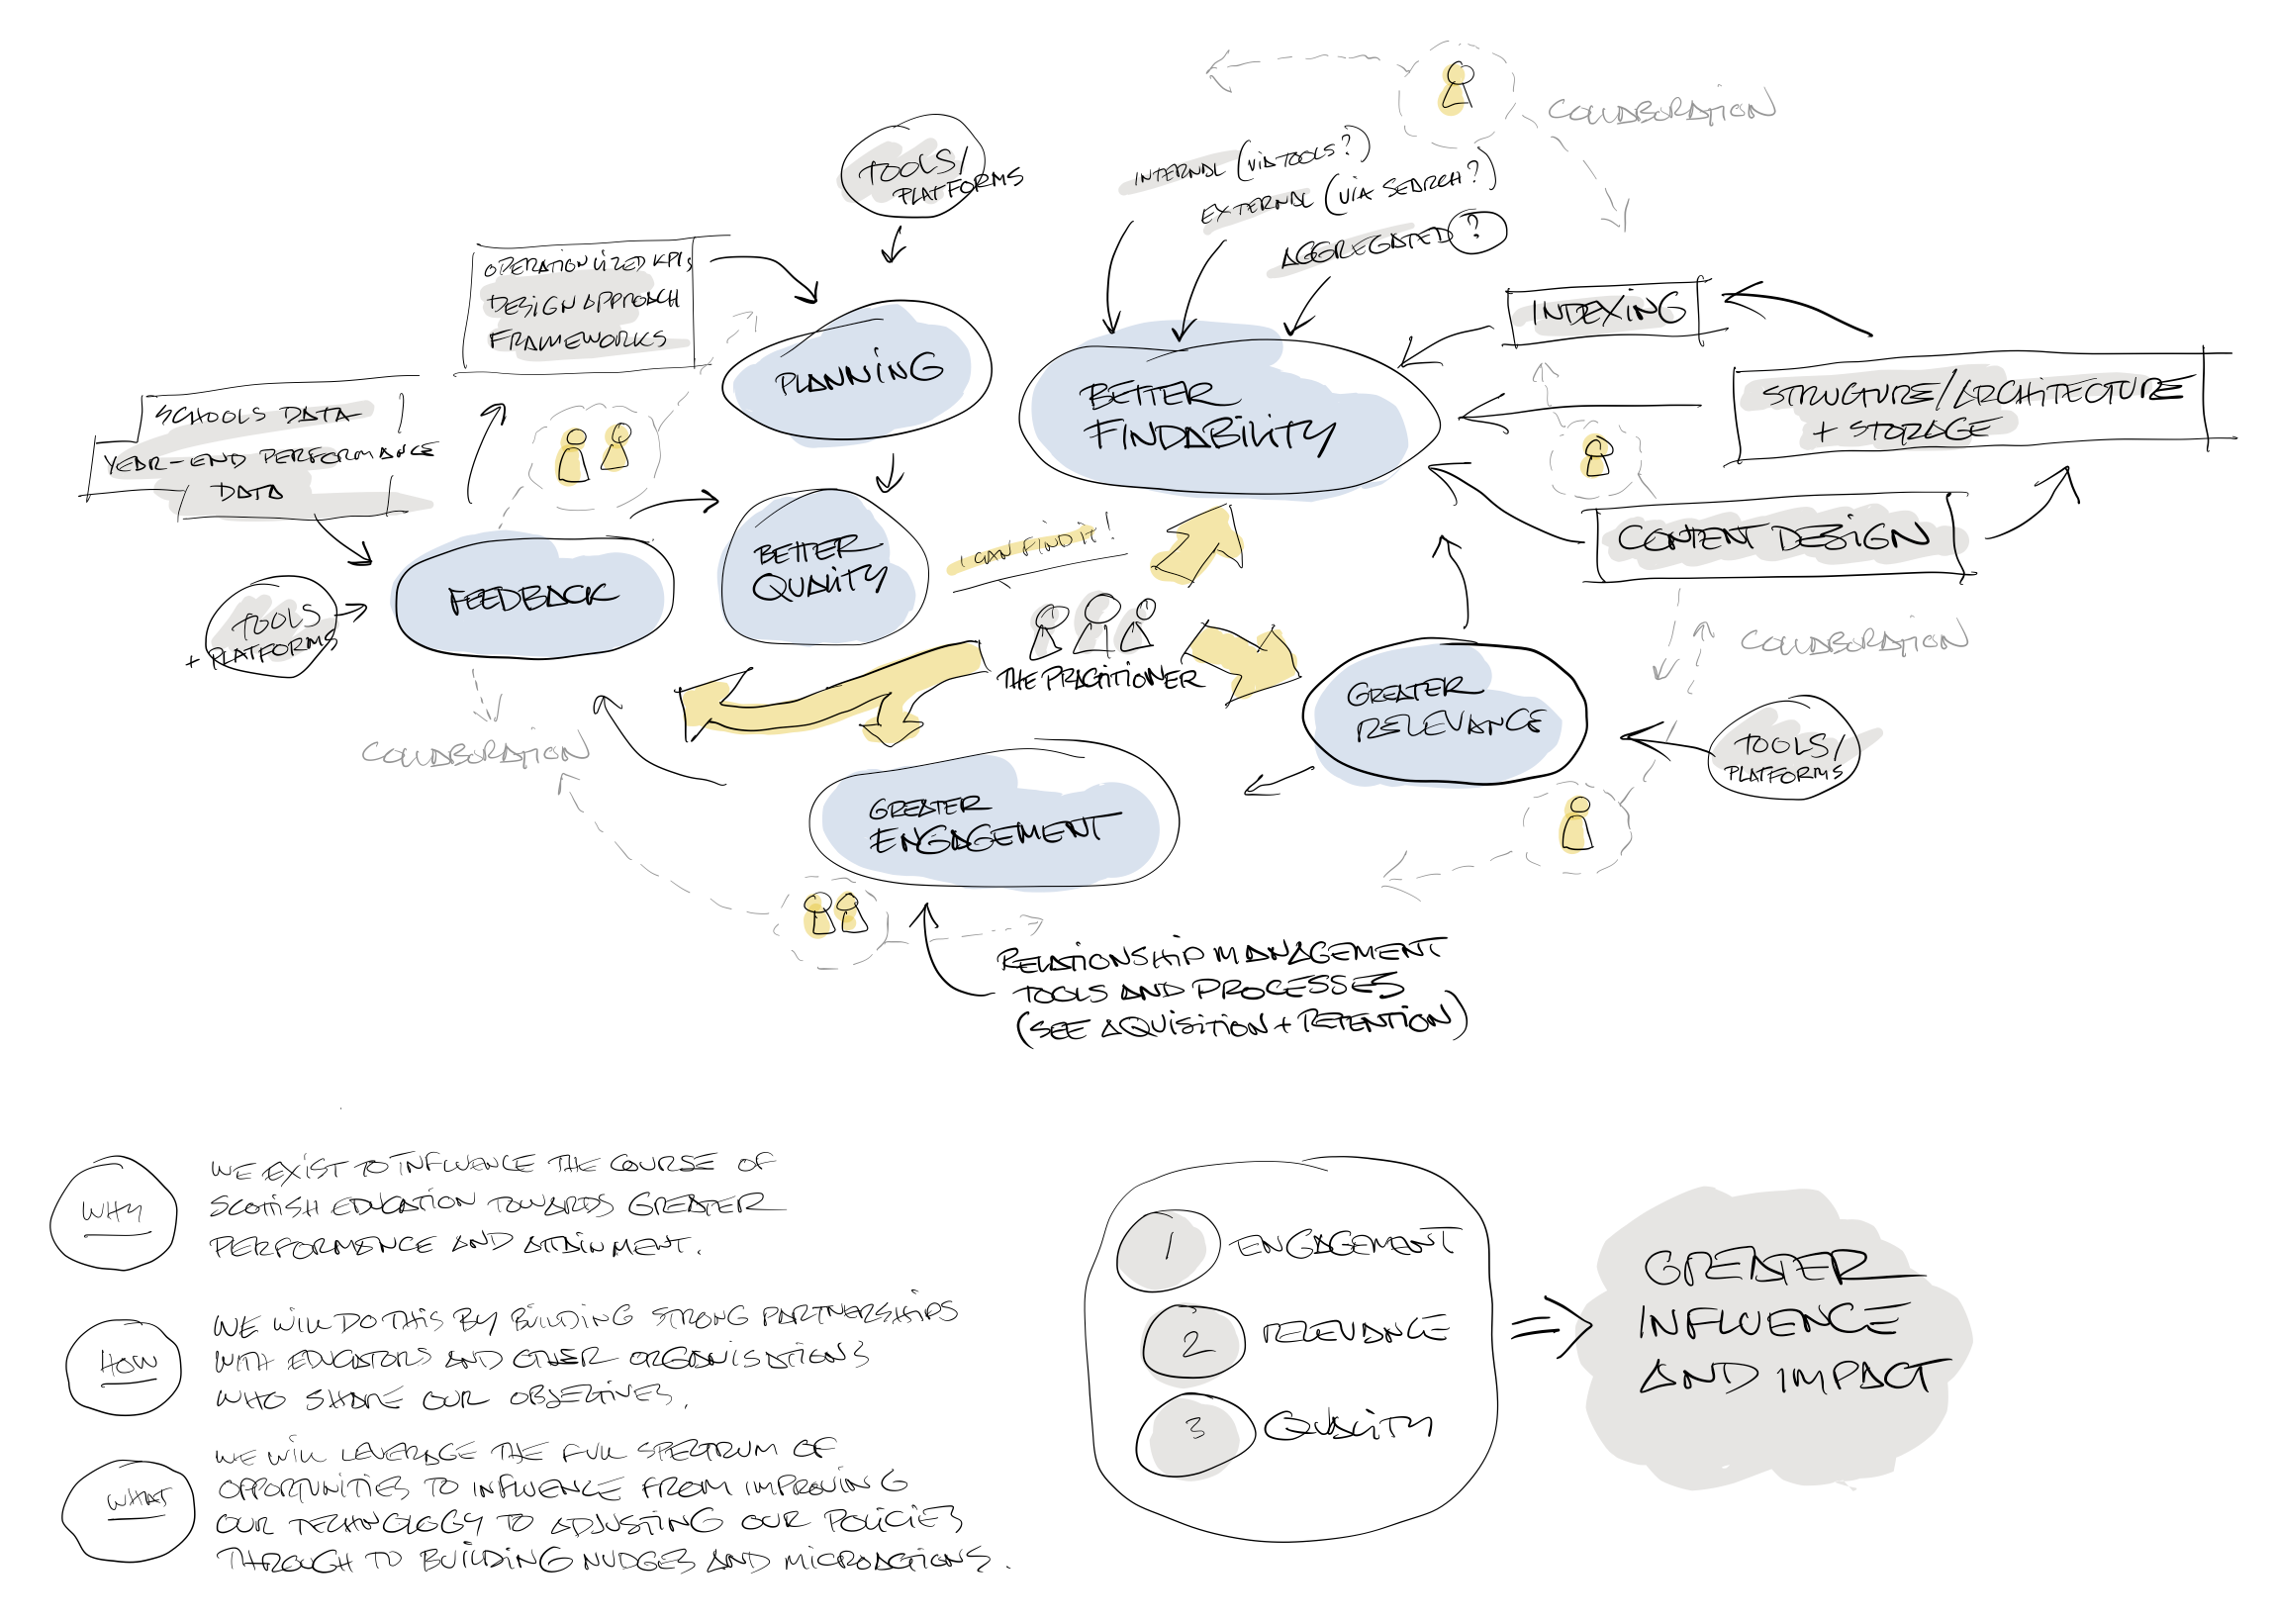 COLLABORATION
TOOLS/
PLATFORMS
INTERNAL (VIA TOOLS?)
EXTERNAL (VIA SEARCH?)
AGGREGATED ?
OPERATIONALIZED KPIs
DESIGN APPROACH
FRAMEWORKS
INDEXING
PLANNING
BETTER
FINDABILITY
STRUCTURE/ARCHITECTURE
+ STORAGE
SCHOOLS DATA
YEAR-END PERFORMANCE
DATA
CONTENT DESIGN
I CAN FIND IT!
BETTER
QUALITY
FEEDBACK
TOOLS
+ PLATFORMS
THE PRACTITIONER
COLLABORATION
GREATER
RELEVANCE
TOOLS/
PLATFORMS
COLLABORATION
GREATER
ENGAGEMENT
RELATIONSHIP MANAGEMENT
TOOLS AND PROCESSES
(SEE AQUISITION + RETENTION)
WHY
WE EXIST TO INFLUENCE THE COURSE OF
SCOTTISH EDUCATION TOWARDS GREATER
PERFORMANCE AND ATTAINMENT.
HOW
WE WILL DO THIS BY BUILDING STRONG PARTNERSHIPS
WITH EDUCATORS AND OTHER ORGANISATIONS
WHO SHARE OUR OBJECTIVES.
WHAT
WE WILL LEVERAGE THE FULL SPECTRUM OF
OPPORTUNITIES TO INFLUENCE FROM IMPROVING
OUR TECHNOLOGY TO ADJUSTING OUR POLICIES
THROUGH TO BUILDING NUDGES AND MICROACTIONS.
1 ENGAGEMENT
2 RELEVANCE
3 QUALITY
GREATER
INFLUENCE
AND IMPACT